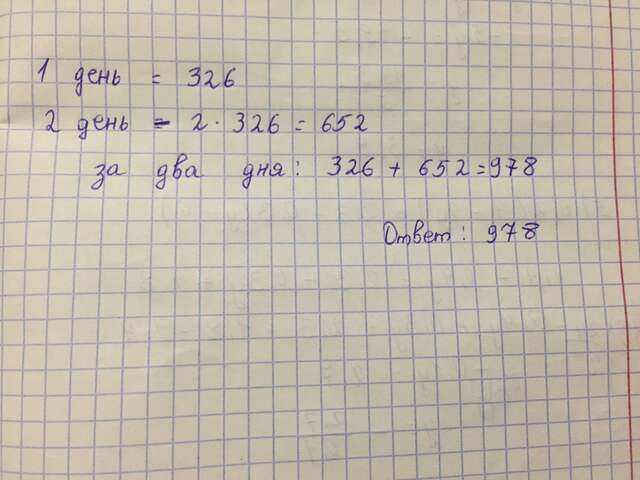 1 день = 326
2 день = 2 · 326 = 652
за два дня: 326 + 652 = 978
Ответ: 978